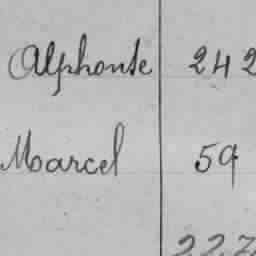 Alphonse 242
Marcel 59
227